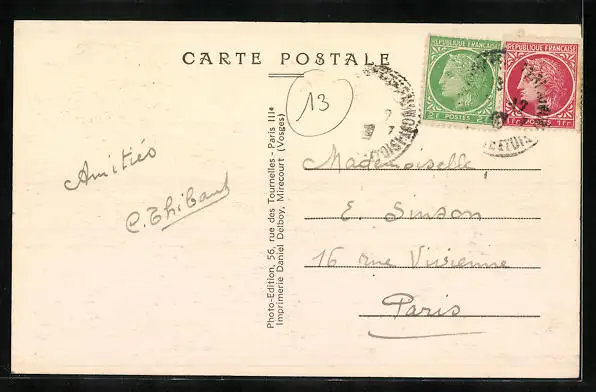 CARTE POSTALE
REPUBLIQUE FRANÇAISE
2F POSTES 2F
REPUBLIQUE FRANÇAISE
1Fr POSTES 1Fr
13
Amitiés
C. Thibaut
Photo-Edition, 56, rue des Tournelles - Paris IIIe
Imprimerie Daniel Delboy, Mirecourt (Vosges)
Mademoiselle
E. Simson
16 rue Vivienne
Paris